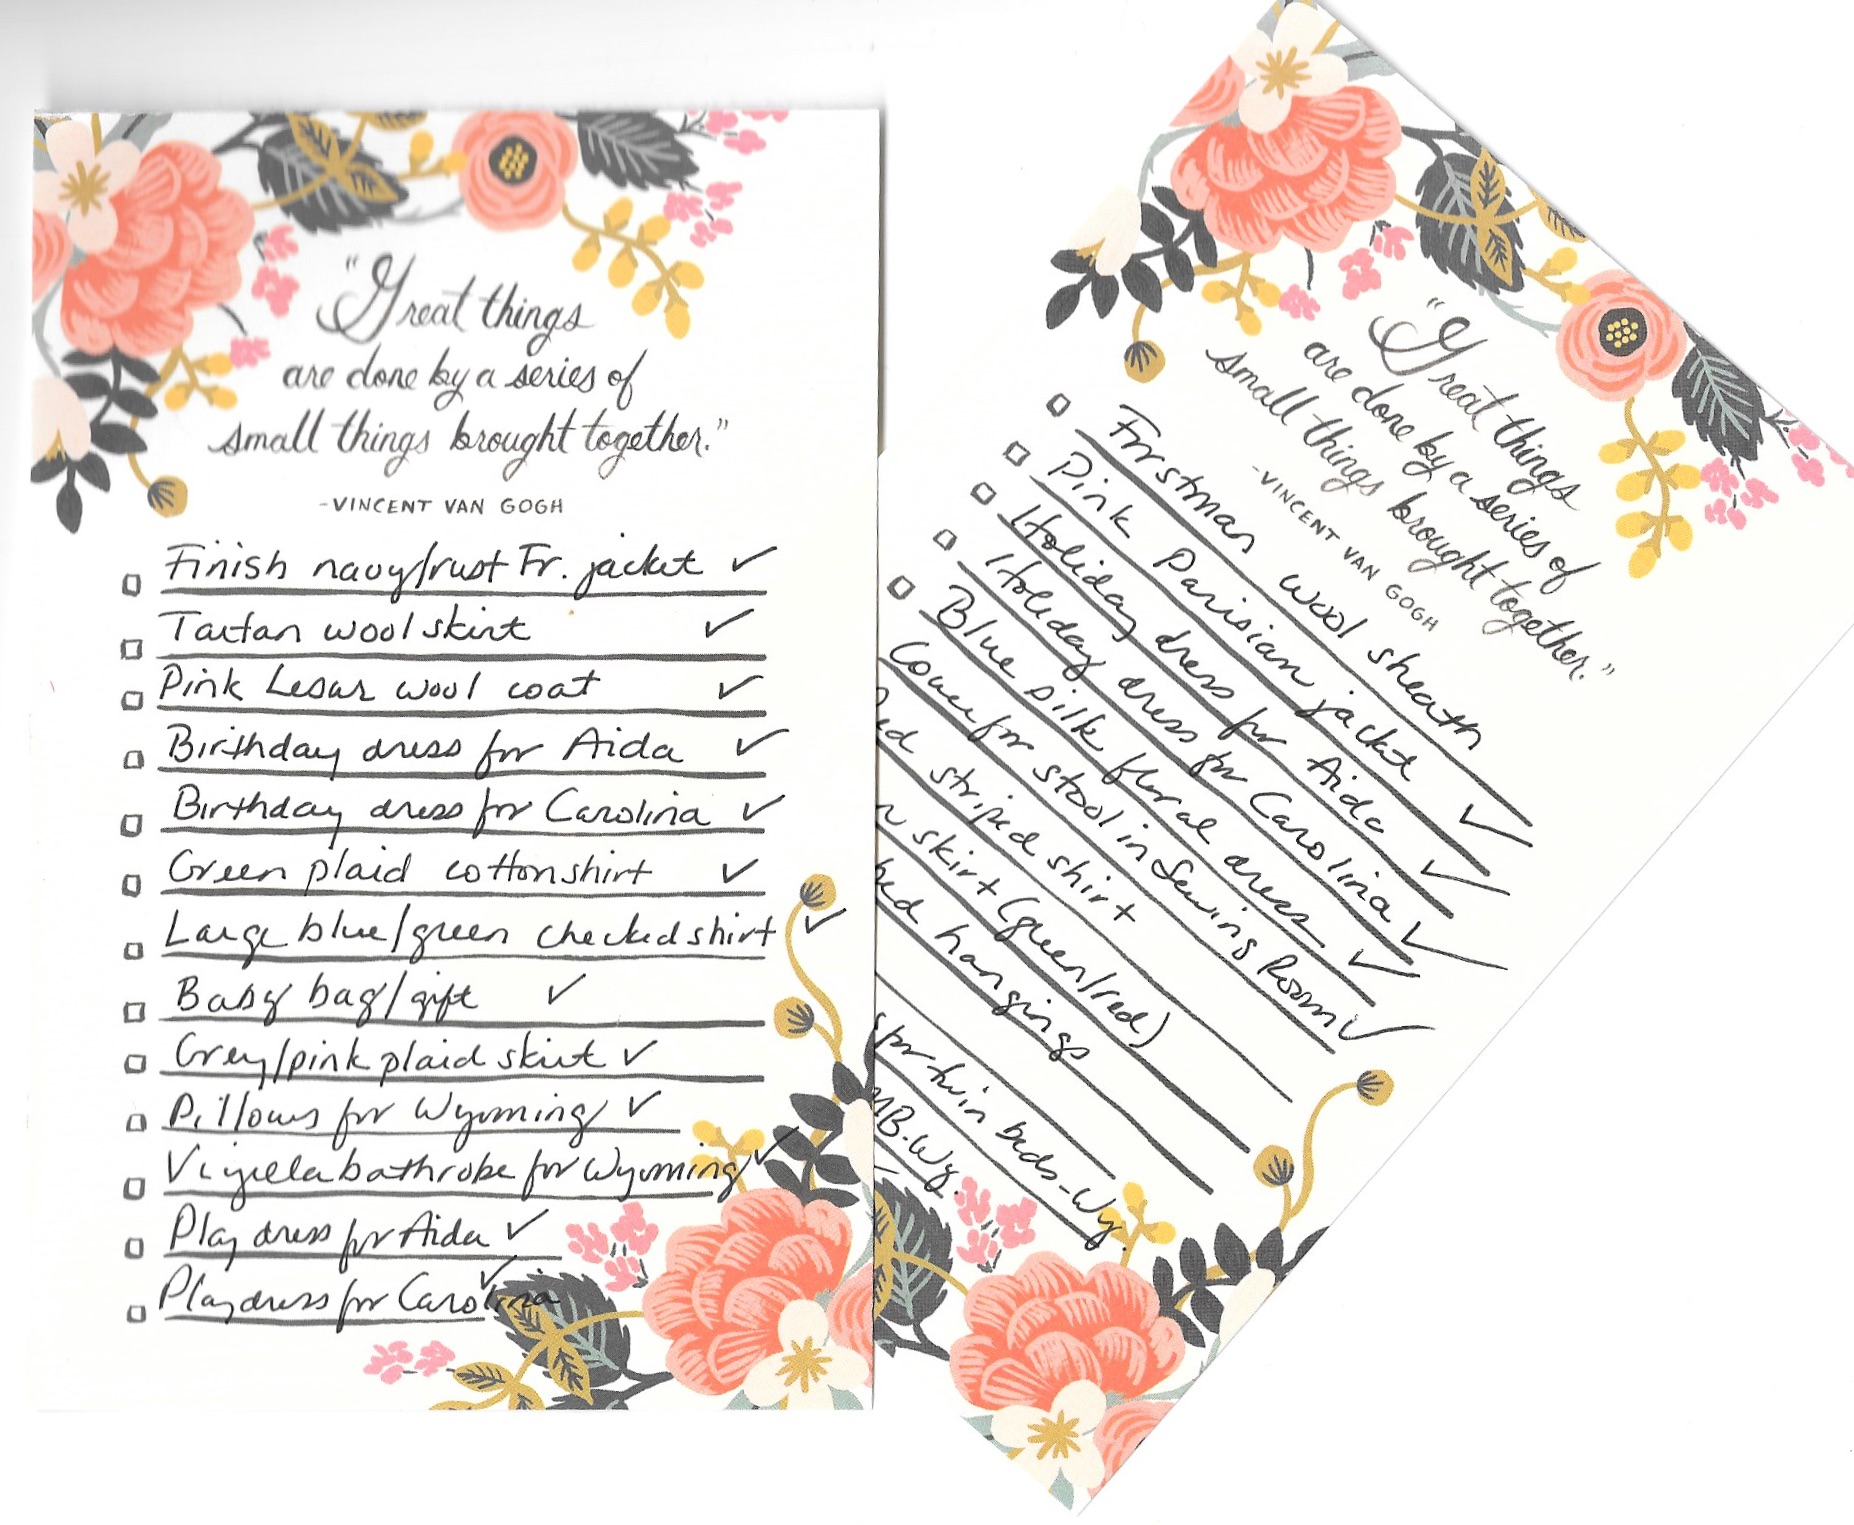 "Great things
are done by a series of
small things brought together."
-VINCENT VAN GOGH
Finish navy/rust Fr. jacket ✓
Tartan wool skirt ✓
Pink Lesur wool coat ✓
Birthday dress for Aida ✓
Birthday dress for Carolina ✓
Green plaid cotton shirt ✓
Large blue/green checked shirt ✓
Baby bag/gift ✓
Grey/pink plaid skirt ✓
Pillows for Wyoming ✓
Viyella bathrobe for Wyoming ✓
Play dress for Aida ✓
Play dress for Carolina ✓
"Great things
are done by a series of
small things brought together."
-VINCENT VAN GOGH
Forstman wool sheath
Pink Parisian jacket ✓
Holiday dress for Aida ✓
Holiday dress for Carolina ✓
Blue silk floral dress ✓
Cover for stool in Sewing Room ✓
striped shirt
skirt (green/red)
hangings
for twin beds-Wy.
MB-Wy.